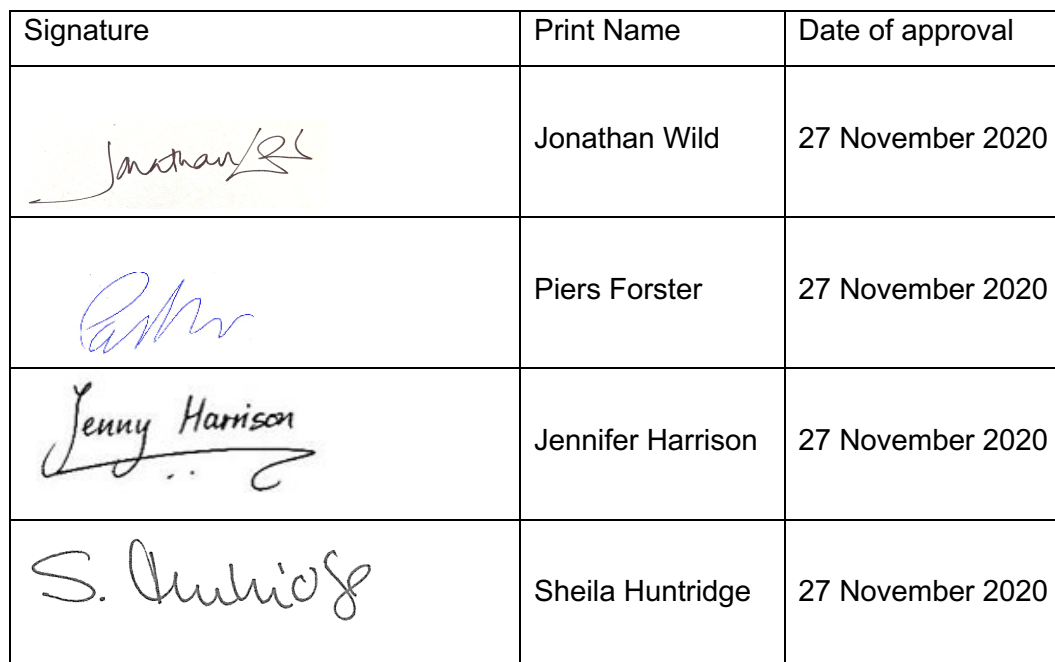 Signature Print Name Date of approval
Jonathan Jonathan Wild 27 November 2020
Piers Forster 27 November 2020
Jenny Harrison Jennifer Harrison 27 November 2020
S. Sheila Huntridge 27 November 2020